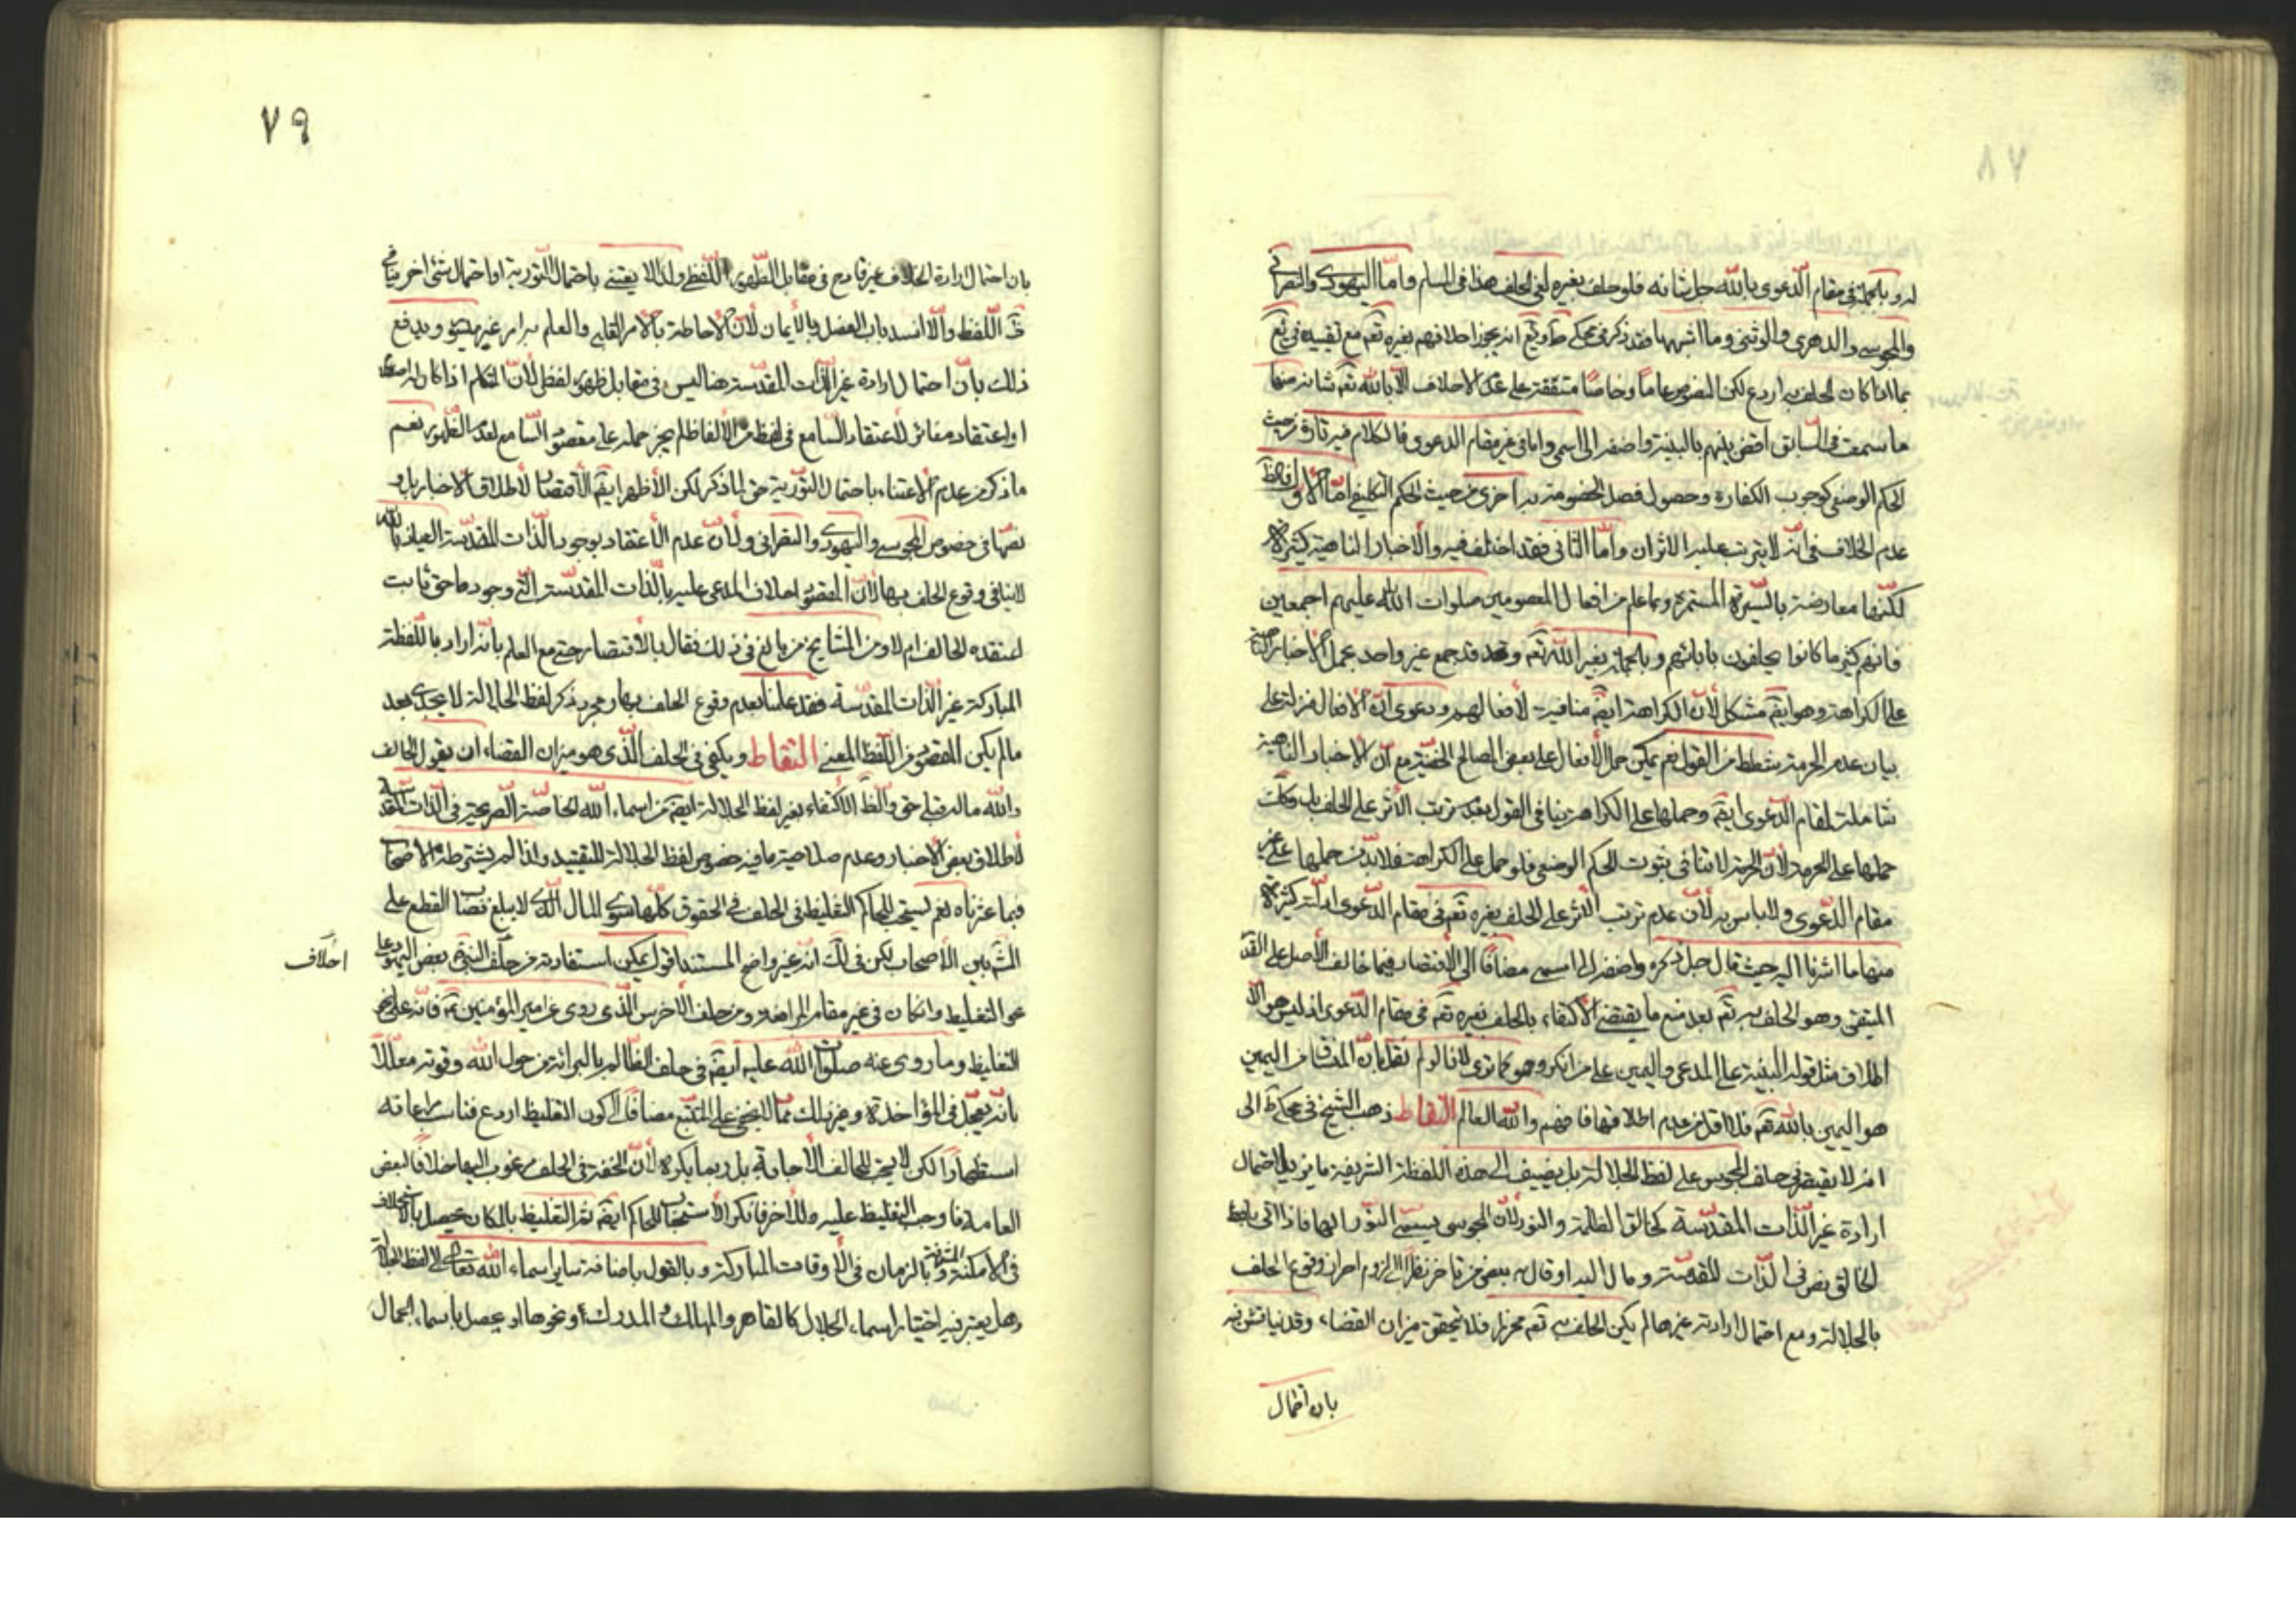 له وبالجملة في مقام الدعوى بالله جل شانه فلو حلف بغيره لغى الحلف هذا في المسلم واما اليهودي والنصراني
والمجوسي والدهري والوثني وما اشبهها فقد ذكر في محكي انه يجوز احلافهم بغيره تعم مع تقييده في
بما اذا كان الحلف به اردع لكن النصوص عاما وخاصا متفقة على عدم الاحلاف الا بالله تعم شانه منها
ما سمعت في السابق اقض بينهم بالبينة واضفهم الى اسمي واما في غير مقام الدعوى فالكلام فيه تارة من حيث
الحكم الوضعي كوجوب الكفارة وحصول فصل الخصومة به واخرى من حيث الحكم التكليفي اما الاول فالظ
عدم الخلاف في انه لا يترتب عليه الاثران واما الثاني فقد اختلف فيه والاخبار الناهية كثيرة
لكنها معارضة بالسيرة المستمرة وبما علم من افعال المعصومين صلوات الله عليهم اجمعين
فانهم كثير ما كانوا يحلفون بابائهم وبالجملة بغير الله تعم وقد جمع غير واحد بحمل الاخبار الناهية
على الكراهة وهو ايضم مشكل لأن الكراهة ايضم منافية لأفعالهم ودعوى ان الافعال منزلة على
بيان عدم الحرمة شطط من القول نعم يمكن حمل الأفعال على بعض المصالح الخفية مع ان الاخبار الناهية
شاملة لمقام الدعوى ايضم وحملها على الكراهة ينافي القول بعدم ترتب الأثر على الحلف بل وكذا
حملها على الحرمة لان الحرمة لا تنافي ثبوت الحكم الوضعي فلو حمل على الكراهة فلا بد من حملها على غير
مقام الدعوى ولا باس به لأن عدم ترتب الأثر على الحلف بغيره تعم في مقام الدعوى ادلته كثيرة
منها ما اشرنا اليه حيث قال جل ذكره واضفهم الى اسمي مضافا الى الاقتصار فيما خالف الأصل على القدر
المتيقن وهو الحلف به تعم بعد منع ما يقتضي الأكتفاء بالحلف بغيره تعم في مقام الدعوى اذ ليس هو الا
اطلاق مثل قوله البينة على المدعي واليمين على من انكر وهو كما ترى لانا لو لم نقل بان المنساق من اليمين
هو اليمين بالله تعم فلا اقل من عدم اطلاقها فافهم والله العالم التقاط ذهب الشيخ في محكي ط الى
انه لا يقتصر في حلف المجوسي على لفظ الجلالة بل يضيف الى هذه اللفظة الشريفة ما يزيل احتمال
ارادة غير الذات المقدسة كخالق الظلمة والنور لأن المجوسي يسمي النور الها فاذا اتى بلفظ
الخالق نص في الذات المقدسة ومال اليه او قال به بعض من تاخر نظرا الى لزوم احراز وقوع الحلف
بالجلالة ومع احتمال ارادته غيرها لم يكن الحلف به تعم محرزا فلا يتحقق ميزان القضاء وقد يناقش فيه
بان احتمال
٧٩
بان احتمال ارادة الخلاف غير قادح في مقابل الظهور اللفظ ولذا لا يعتنى باحتمال التورية او احتمال شئ اخر ينافي
اللفظ والا انسد باب الفصل بالأيمان لأن الاحاطة بالامر القلبي والعلم به امر غير ويدفع
ذلك بان احتمال ارادة غير الذات المقدسة هنا ليس في مقابل ظهور لفظ لأن المتكلم اذا كان له اصطلاح
او اعتقاد مغائر لأعتقاد السامع في لفظ من الألفاظ لم يجز حمله على مقصود السامع لعدم الظهور نعم
ما ذكر من عدم الاعتناء باحتمال التورية حق لما ذكر لكن الأظهر ايضم الأقتصار لأطلاق الاخبار بل و
نصها في خصوص المجوسي واليهودي والنصراني ولأن عدم الأعتقاد بوجود الذات المقدسة العياذ بالله
لا ينافي وقوع الحلف بها لأن المقصود احلاف المدعى عليه بالذات المقدسة التي وجودها حق ثابت
اعتقده الحالف ام لا ومن المشايخ من بالغ في ذلك فقال بالاقتصار حتى مع العلم بانه اراد باللفظة
المباركة غير الذات المقدسة فقد علمنا بعدم وقوع الحلف بها ومجرد ذكر لفظ الجلالة لا يجدي بعد
ما لم يكن المقصود من اللفظ المعنى التقاط ويكفي في الحلف الذي هو ميزان القضاء ان يقول الحالف
والله ماله قبلي حق والظ الأكتفاء بغير لفظ الجلالة ايضم من اسماء الله الخاصة الصريحة في الذات المقدسة
لأطلاق بعض الأخبار وعدم صلاحية ما فيه خصوص لفظ الجلالة للتقييد ولذا لم يشترطه الاصحاب
فيما عثرناه نعم يستحب للحاكم التغليظ في الحلف في الحقوق كلها سوى المال الذي لا يبلغ نصاب القطع على
المش بين الأصحاب لكن في لك انه غير واضح المستند اقول يمكن استفادته من حلف النبي بعض اليهود على
احلاف
نحو التغليظ وان كان في غير مقام المرافعة ومن حلف الأخرس الذي روى عن امير المؤمنين ع فانه على نحو
التغليظ وما روى عنه صلوات الله عليه ايضم في حلف الظالم بالبرائة من حول الله وقوته معللا
بانه يعجل في المؤاخذة وغير ذلك مما لا يخفى على المتتبع مضافا الى كون التغليظ اردع فناسب مراعاته
استظهارا لكن لا يجب للحالف الأجابة بل ربما يكره لأن الخفة في الحلف مرغوب اليها خلافا لبعض
العامة فاوجب التغليظ عليه ولأخر فانكر الأستحباب للحاكم ايضم ثم التغليظ بالمكان يحصل بالاحلاف
في الامكنة الشريفة وبالزمان في الأوقات المباركة وبالقول باضافة ساير اسماء الله تعالى الى لفظ الجلالة
وهل يعتبر فيه اختيار اسماء الجلال كالقاهر والمهلك والمدرك او نحوها او يحصل باسماء الجمال